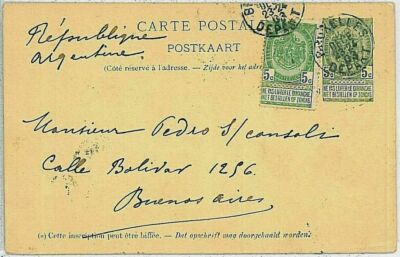 CARTE POSTALE
POSTKAART
(Côté réservé à l'adresse. — Zijde voor het adres
République
Argentine.
BRUXELLES
DEPART
DEPART
5c 5c
5c
NE PAS LIVRER LE DIMANCHE
NIET BESTELLEN OP ZONDAG
NE PAS LIVRER LE DIMANCHE
NIET BESTELLEN OP ZONDAG
Monsieur Pedro Sconsoli
Calle Bolivar 1256.
Buenos aires
(*) Cette inscription peut être biffée. — Dat opschrift mag doorgehaald worden.